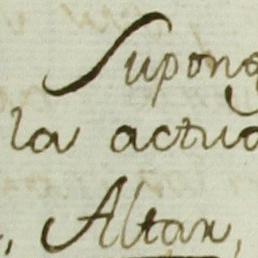 Supong
la actua
, Altar,